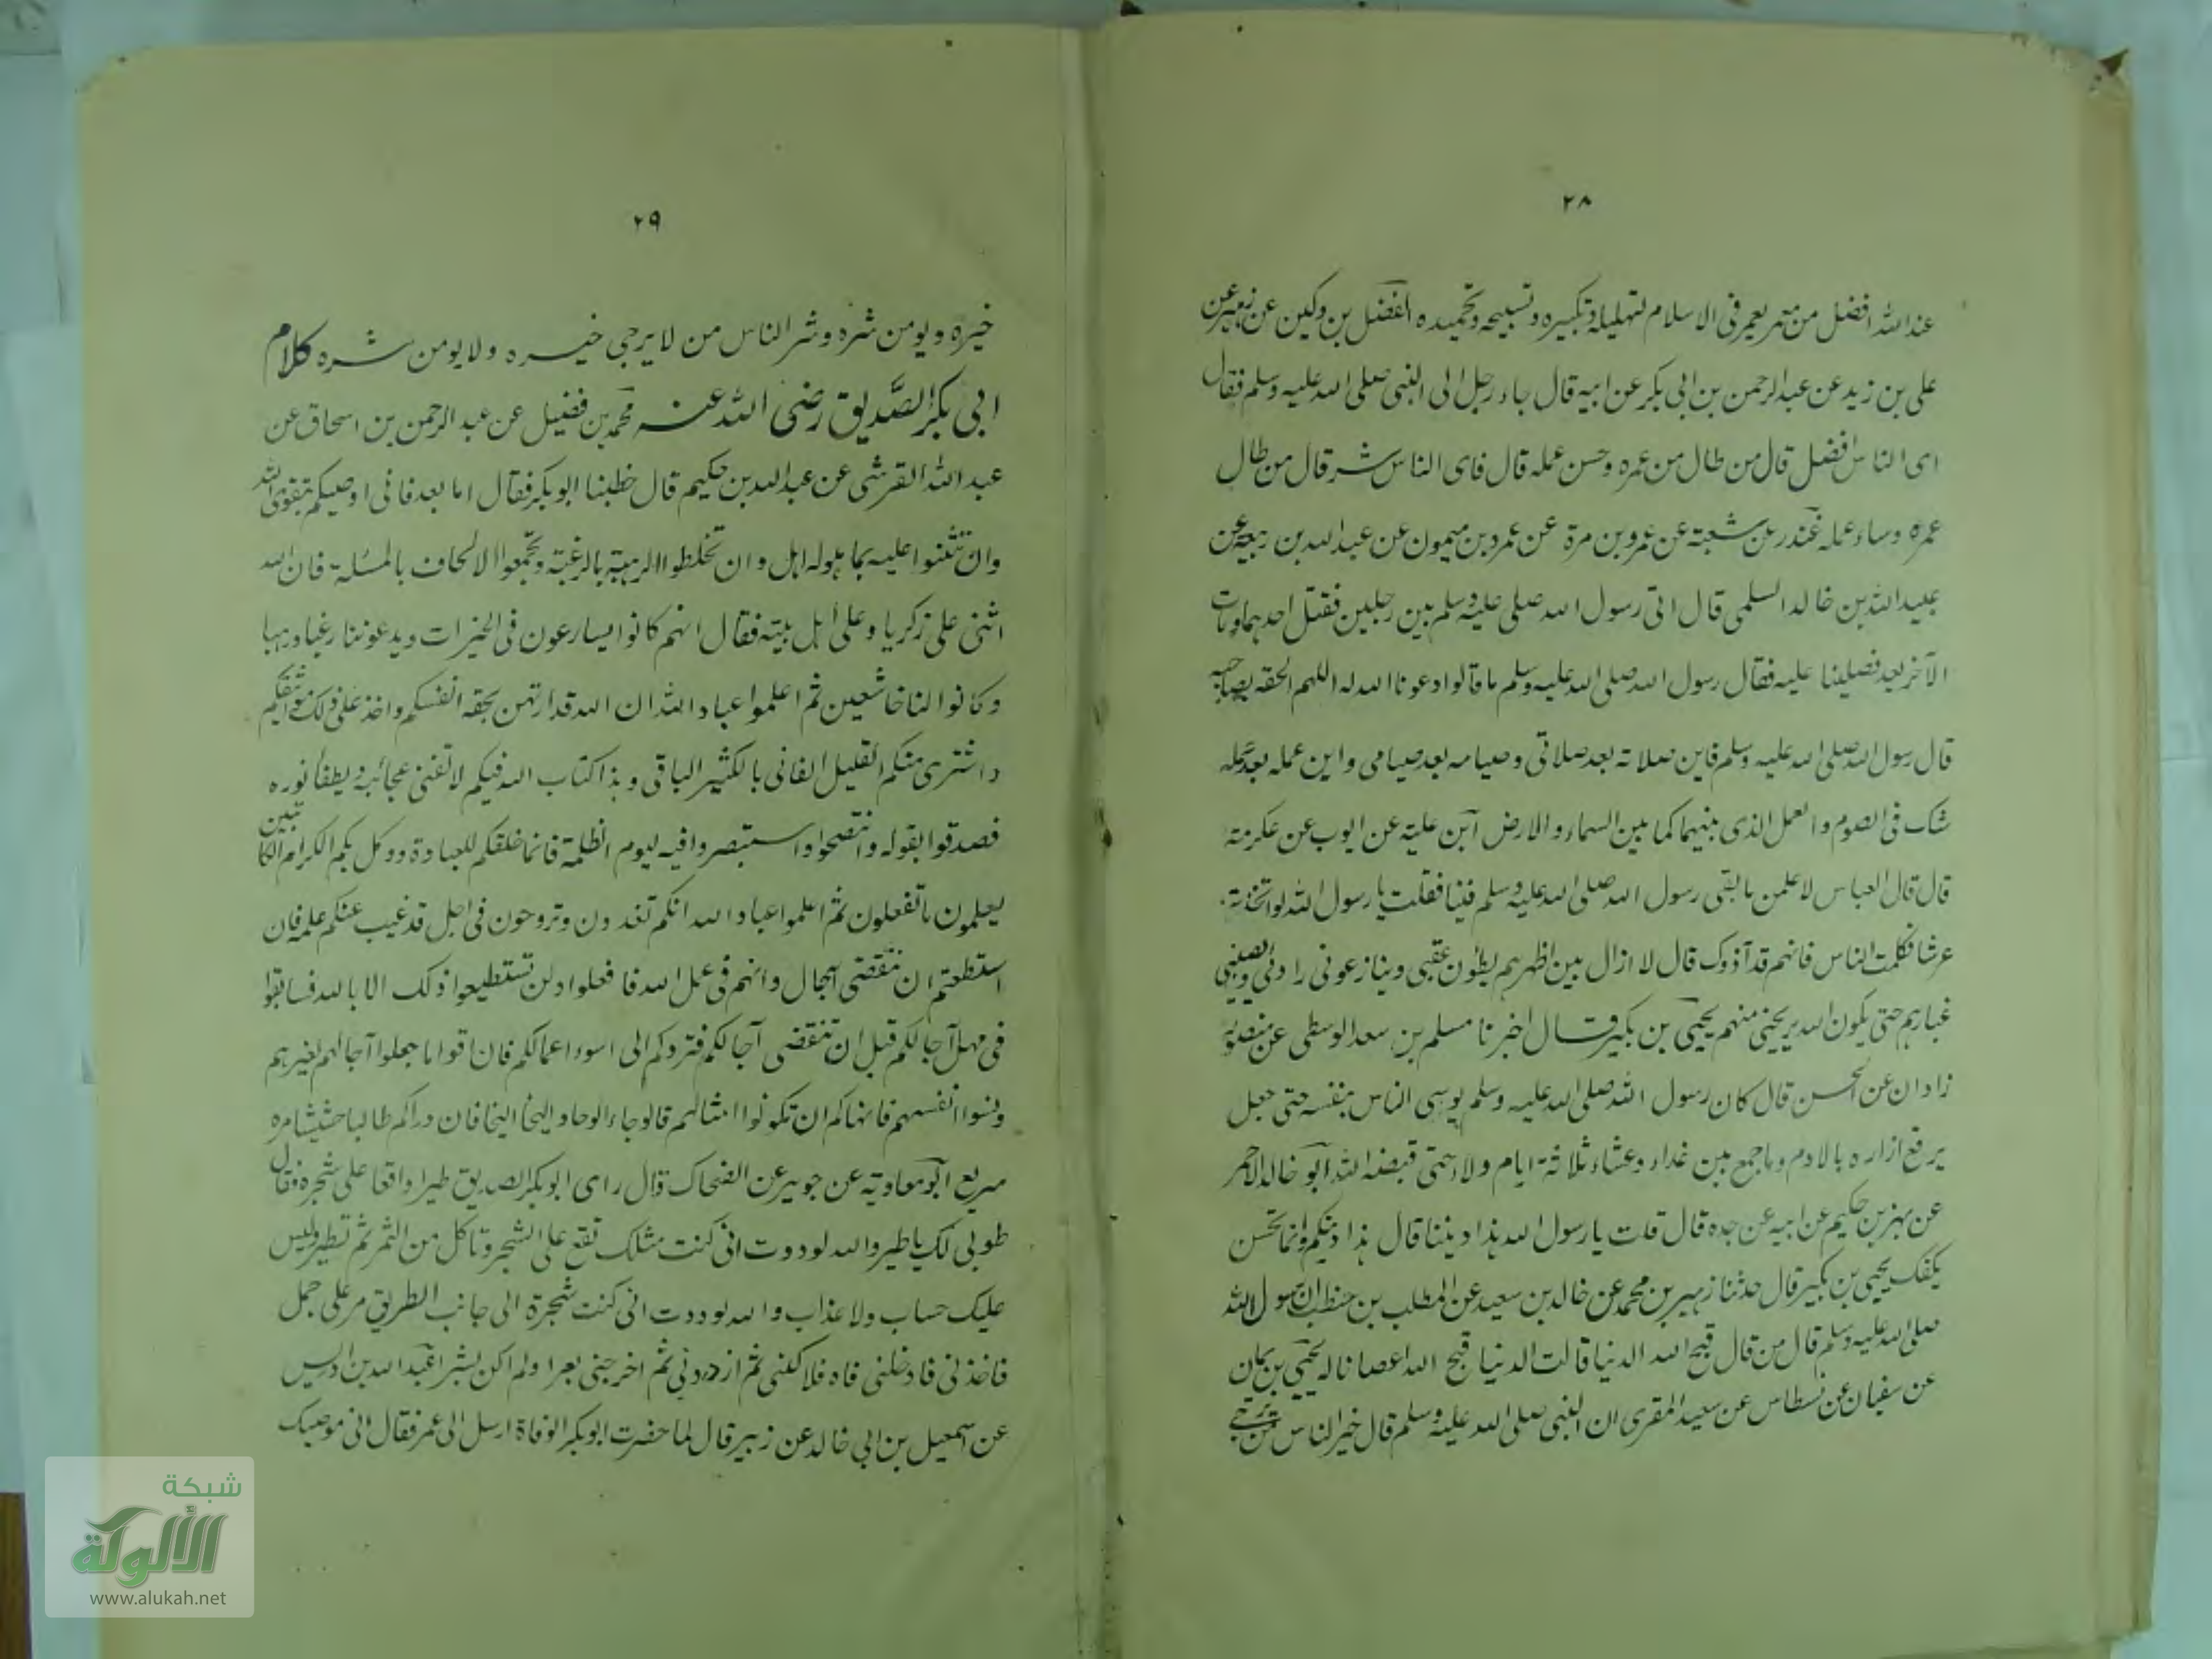 ٢٨
عند الله افضل من معمر يعمر فى الاسلام لتهليله وتكبيره وتسبيحه وتحميده الفضل بن دكين عن زهير عن
على بن زيد عن عبد الرحمن بن ابى بكر عن ابيه قال جاء رجل الى النبى صلى الله عليه وسلم فقال
اى الناس افضل قال من طال من عمره وحسن عمله قال فاى الناس شر قال من طال
عمره وساء عمله غندر عن شعبة عن عمرو بن مرة عن عمرو بن ميمون عن عبد الله بن ربيعة عن
عبيد الله بن خالد السلمى قال اتى رسول الله صلى عليه وسلم بين رجلين فقتل احدهما ومات
الآخر بعد فصلينا عليه فقال رسول الله صلى الله عليه وسلم ما قالوا دعونا الله له اللهم الحقه بصاحبه
قال رسول الله صلى الله عليه وسلم فاين صلاته بعد صلاتى وصيامه بعد صيامى واين عمله بعد عمله
شك فى الصوم والعمل الذى بينهما كما بين السماء والارض ابن علية عن ايوب عن عكرمة
قال قال العباس لاعلمن ما بقى رسول الله صلى الله عليه وسلم فينا فقلت يا رسول الله لو اتخذت
عرشا فكلمت الناس فانهم قد آذوك قال لا ازال بين اظهرهم يطؤن عقبى وينازعونى ردائى ويصيبنى
غبارهم حتى يكون الله يريحنى منهم يحيى بن بكير قال اخبرنا مسلم بن سعد الوسطى عن منصور
زادان عن الحسن قال كان رسول الله صلى الله عليه وسلم يوسى الناس بنفسه حتى جعل
يرفع ازاره بالادم وما جمع بين غداء وعشاء ثلاثة ايام ولاء حتى قبضه الله ابو خالد الاحمر
عن بهز بن حكيم عن ابيه عن جده قال قلت يا رسول الله هذا ديننا قال هذا دينكم وانما تحسن
يكفك يحيى بن بكير قال حدثنا زهير بن محمد عن خالد بن سعيد عن المطلب بن حنطب ان رسول الله
صلى الله عليه وسلم قال من قال قبح الله الدنيا قالت الدنيا قبح الله اعصانا له يحيى بن يمان
عن سفيان عن نسطاس عن سعيد المقرى ان النبى صلى الله عليه وسلم قال خير الناس من يرجى
٢٩
خيره ويومن شره وشر الناس من لا يرجى خيره ولا يومن شره كلام
ابى بكر الصديق رضى الله عنه محمد بن فضيل عن عبد الرحمن بن اسحاق عن
عبد الله القرشى عن عبد الله بن حكيم قال خطبنا ابو بكر فقال اما بعد فانى اوصيكم بتقوى الله
وان تثنوا عليه بما هو له اهل وان تخلطوا الرهبة بالرغبة وتجمعوا الالحاف بالمسئلة فان الله
اثنى على زكريا وعلى اهل بيته فقال انهم كانوا يسارعون فى الخيرات ويدعوننا رغبا ورهبا
وكانوا لنا خاشعين ثم اعلموا عباد الله ان الله قد ارتهن بحقه انفسكم واخذ على ذلك مواثيقكم
واشترى منكم القليل الفانى بالكثير الباقى وهذا كتاب الله فيكم لا تفنى عجائبه ويطفأ نوره
فصدقوا بقوله وانتصحوا واستبصروا فيه ليوم الظلمة فانما خلقكم للعبادة ووكل بكم الكرام الكاتبين
يعلمون ما تفعلون ثم اعلموا عباد الله انكم تغدون وتروحون فى اجل قد غيب عنكم علمه فان
استطعتم ان تنقضى آجال وانهم فى عمل الله فافعلوا ولن تستطيعوا ذلك الا بالله فسابقوا
فى مهل آجالكم قبل ان تنقضى آجالكم فتردكم الى اسوء اعمالكم فان اقواما جعلوا آجالهم لغيرهم
ونسوا انفسهم فانهاكم ان تكونوا امثالهم فالوحاء الوحا والنجا النجا فان وراكم طالبا حثيثا مره
سريع ابو معاوية عن جويبر عن الضحاك قال راى ابو بكر الصديق طيرا واقعا على شجرة فقال
طوبى لك يا طير والله لوددت انى كنت مثلك تقع على الشجر وتاكل من الثمر ثم تطير وليس
عليك حساب ولا عذاب والله لوددت انى كنت شجرة الى جانب الطريق مر على جمل
فاخذنى فادخلنى فاه فلاكنى ثم ازدردنى ثم اخرجنى بعرا ولم اكن بشرا عبد الله بن ادريس
عن اسمعيل بن ابى خالد عن زبير قال لما حضرت ابو بكر الوفاة ارسل الى عمر فقال انى موصيك
شبكة
الألوكة
www.alukah.net